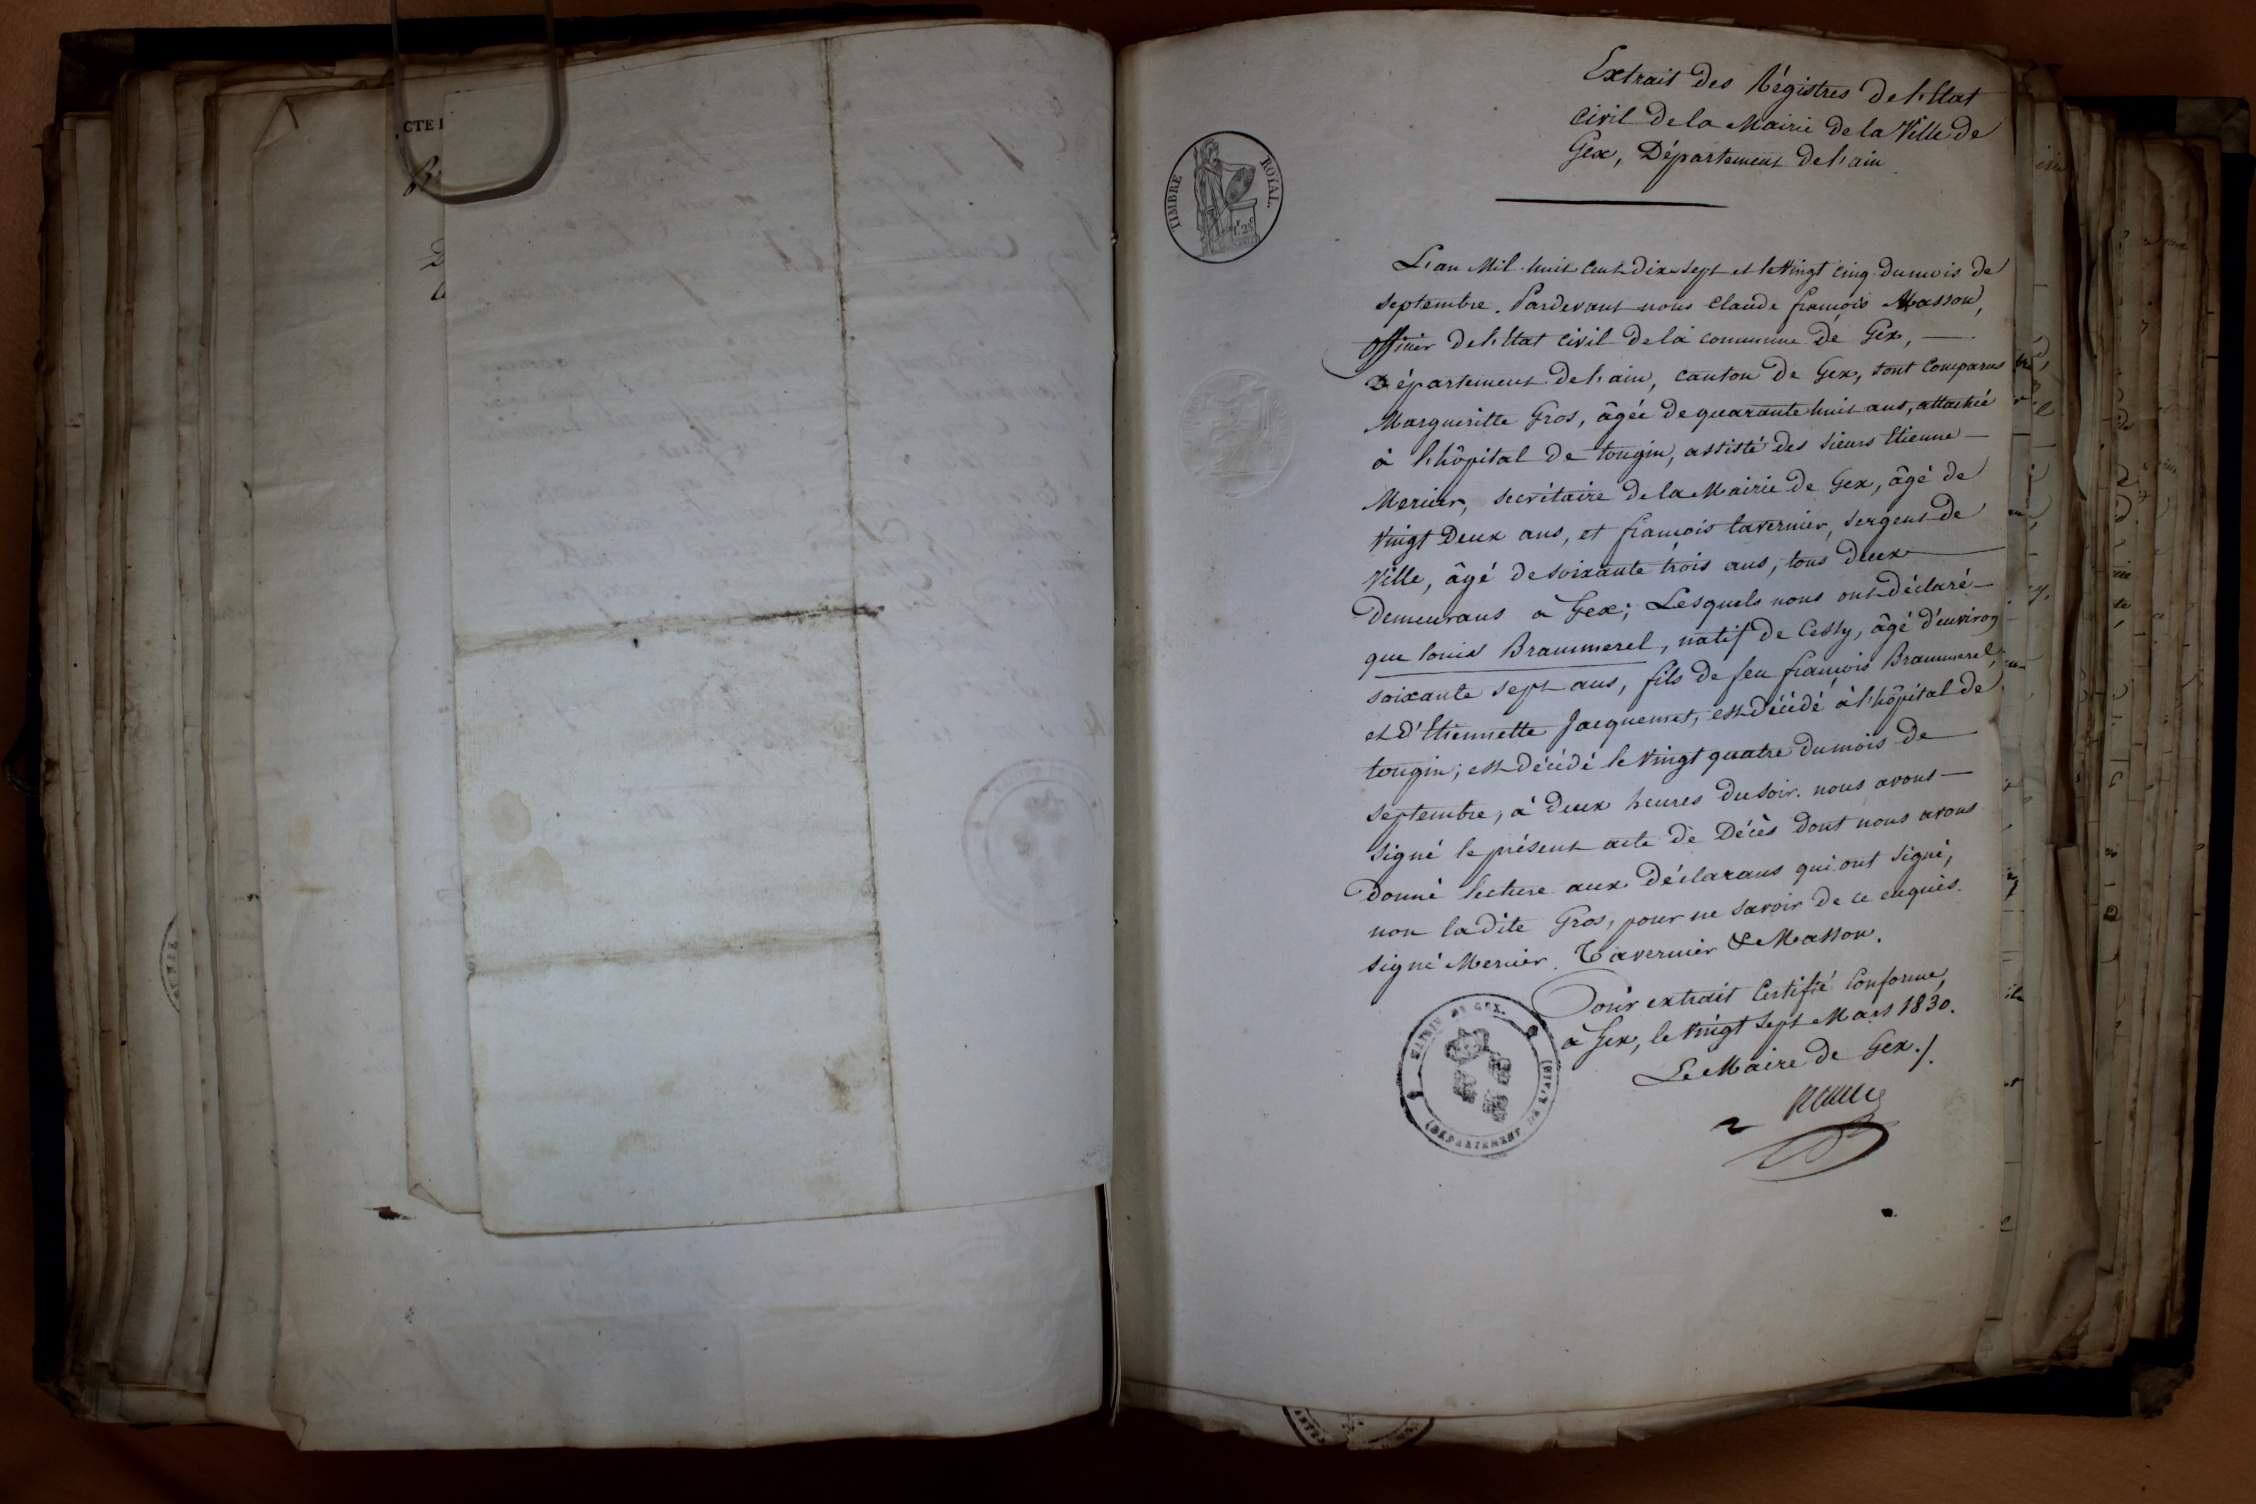 CTE
Extrait des Régistres de l'Etat
Civil de la Mairie de la Ville de
Gex, Département de l'ain.
TIMBRE ROYAL.
L'an Mil huit cent dix sept et le Vingt cinq du mois de
septembre. Pardevant nous Claude françois Masson,
Officier de l'Etat Civil de la commune de Gex,
Département de l'ain, canton de Gex, sont comparus
Margueritte Gros, âgée de quarante huit ans, attachée
à l'hôpital de tougin, assisté des sieurs Etienne
Mercier, secrétaire de la Mairie de Gex, âgé de
Vingt Deux ans, et françois tavernier, sergent de
Ville, âgé de soixante trois ans, tous deux
Demeurans à Gex; Lesquels nous ont déclaré
que louis Brammerel, natif de Cessy, âgé d'environ
soixante sept ans, fils de feu françois Brammerel,
et d'Etiennette Jacquemet, est décédé à l'hôpital de
tougin; est décédé le Vingt quatre du mois de
septembre, à deux heures du soir. nous avons
signé le présent acte de Décès dont nous avons
Donné lecture aux Déclarans qui ont signé,
non la dite Gros, pour ne savoir de ce enquis.
signé Mercier. Tavernier & Masson.
Pour extrait Certifié Conforme,
à Gex, le Vingt sept Mars 1830.
Le Maire de Gex./.
MAIRIE DE GEX.
(DÉPARTEMENT DE L'AIN)